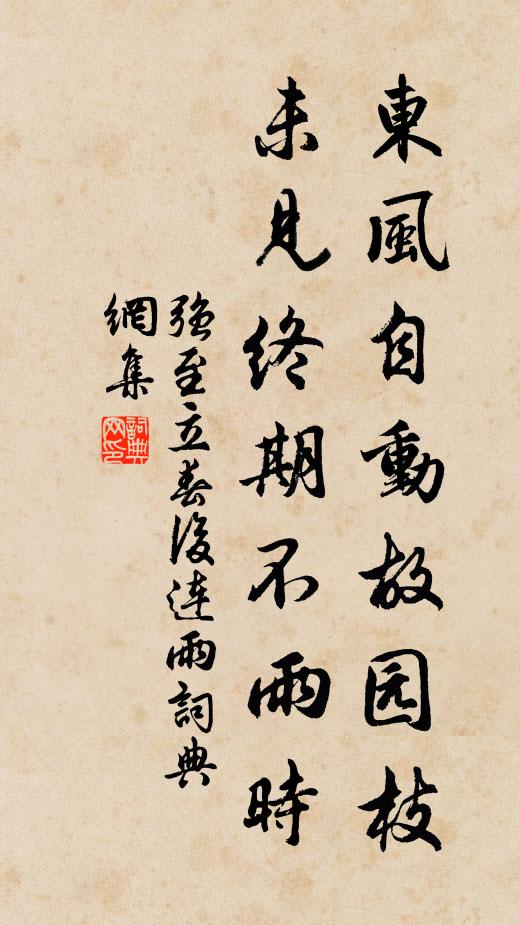 東風自動故园枝
未見終期不雨時
强至立春後連雨詞典
網集
詞典
网印